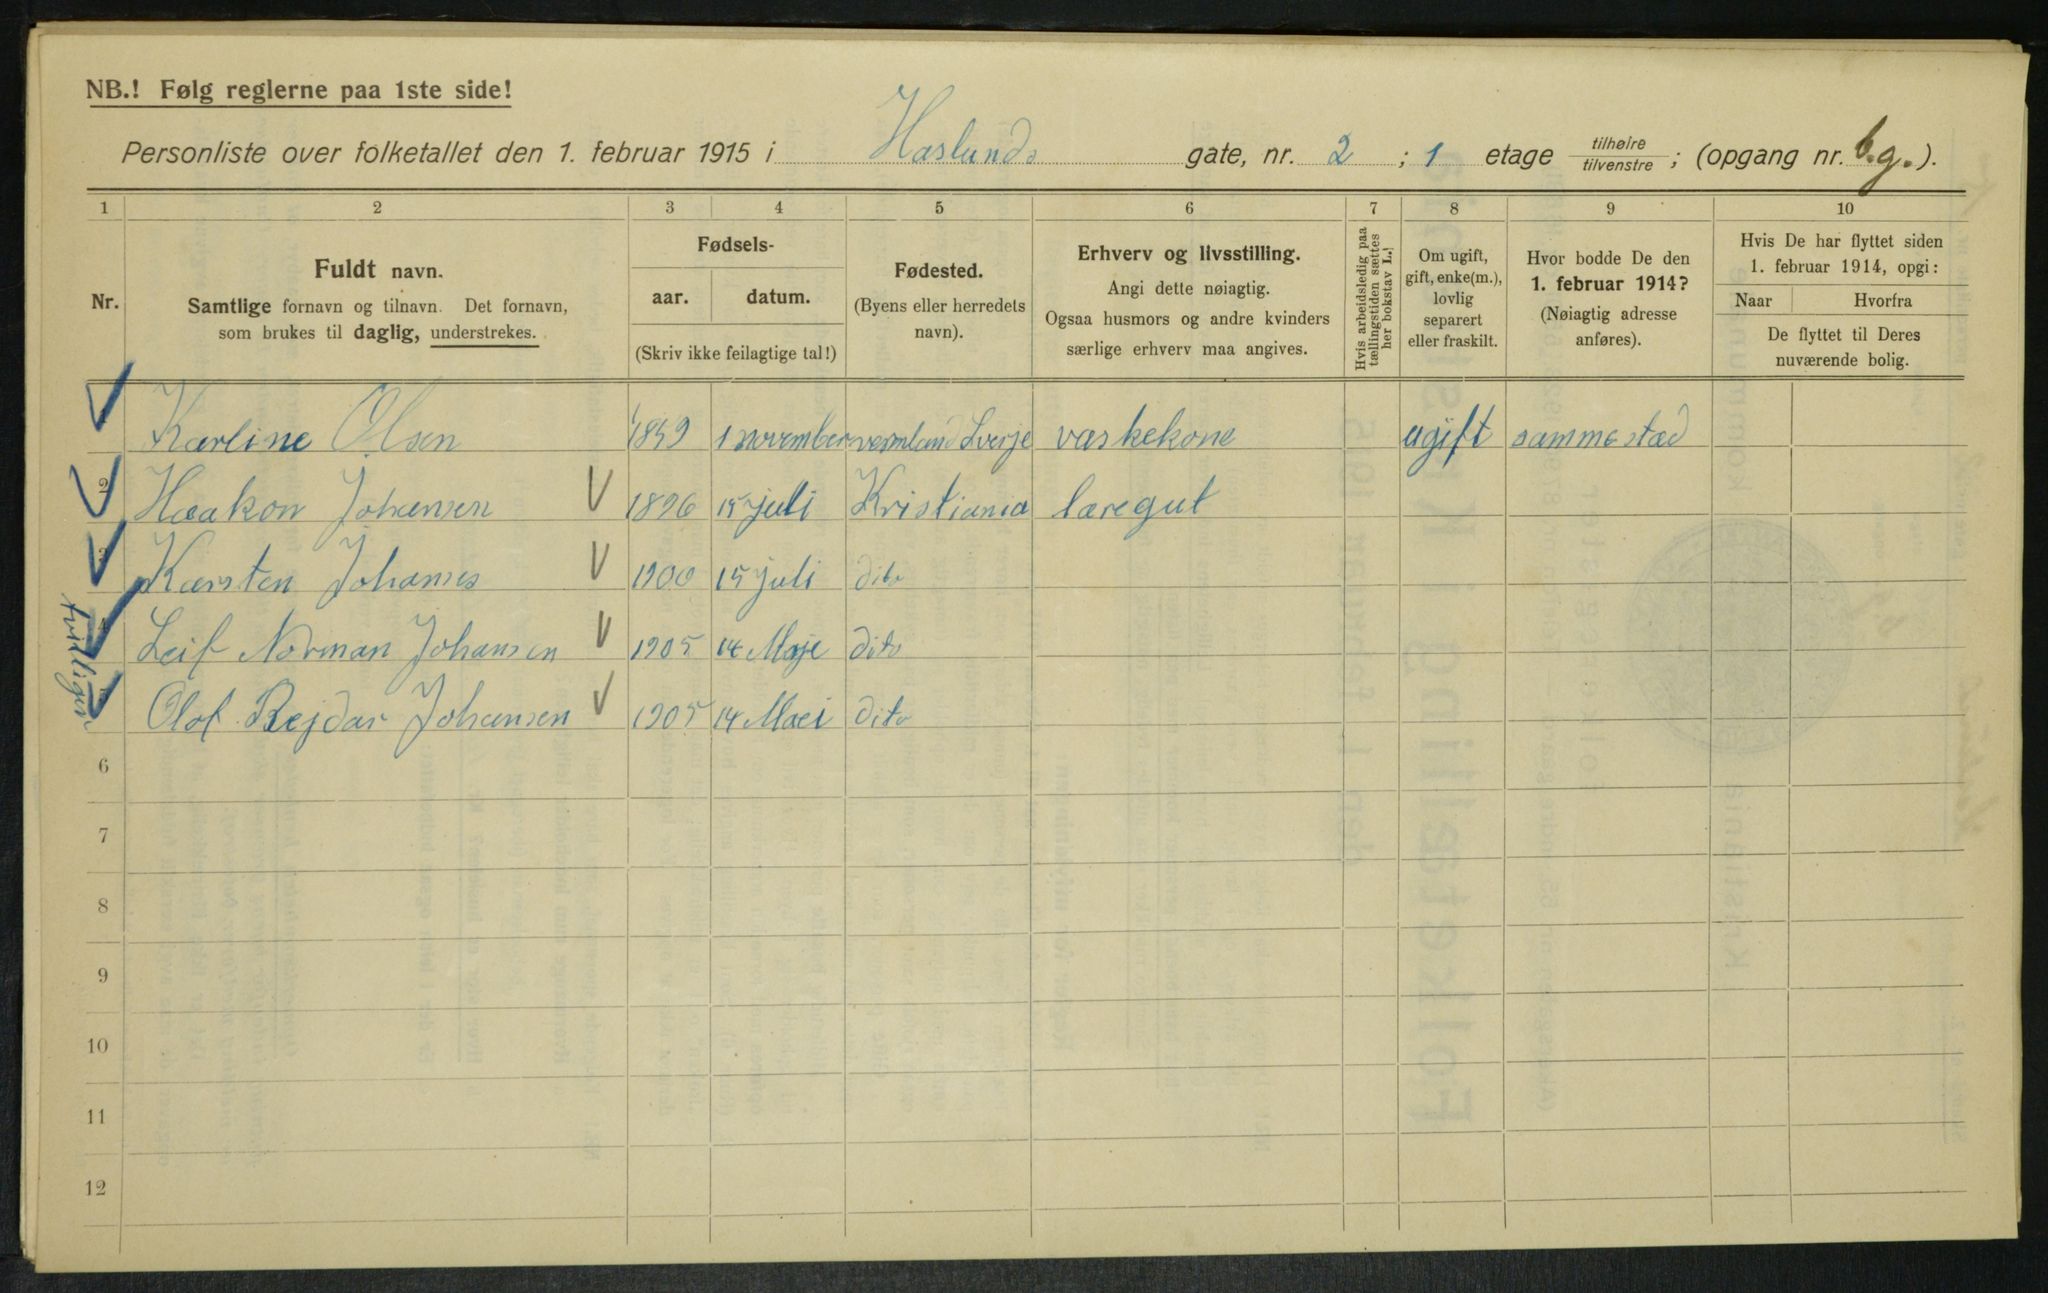 NB.! Følg reglerne paa 1ste side!
Personliste over folketallet den 1. februar 1915 i Haslunds gate, nr. 2 ; 1 etage tilhøire/tilvenstre ; (opgang nr. b.g.).
1 2 3 4 5 6 7 8 9 10
Nr.
Fuldt navn.
Samtlige fornavn og tilnavn. Det fornavn,
som brukes til daglig, understrekes.
Fødsels-
aar. datum.
(Skriv ikke feilagtige tal!)
Fødested.
(Byens eller herredets
navn).
Erhverv og livsstilling.
Angi dette nøiagtig.
Ogsaa husmors og andre kvinders
særlige erhverv maa angives.
Hvis arbeidsledig paa
tællingstiden sættes
her bokstav L.!
Om ugift,
gift, enke(m.),
lovlig
separert
eller fraskilt.
Hvor bodde De den
1. februar 1914?
(Nøiagtig adresse
anføres).
Hvis De har flyttet siden
1. februar 1914, opgi:
Naar Hvorfra
De flyttet til Deres
nuværende bolig.
Karline Olsen 1849 1 november vermland Sverje vaskekone ugift sammestad
2 Haakon Johansen 1896 15 juli Kristiania læregut
3 Karsten Johanses 1900 15 juli dito
4 Leif Norman Johansen 1905 14 Maje dito
Olof Rejdar Johansen 1905 14 Maei dito
tvillinger
6
7
8
9
10
11
12